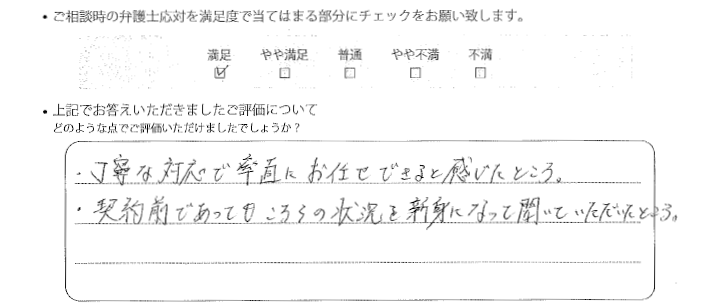 • ご相談時の弁護士応対を満足度で当てはまる部分にチェックをお願い致します。
満足 やや満足 普通 やや不満 不満
☑ ☐ ☐ ☐ ☐
• 上記でお答えいただきましたご評価について
どのような点でご評価いただけましたでしょうか?
・丁寧な対応で率直にお任せできると感じたところ。
・契約前であってもこちらの状況を新身になって聞いていただいたところ。